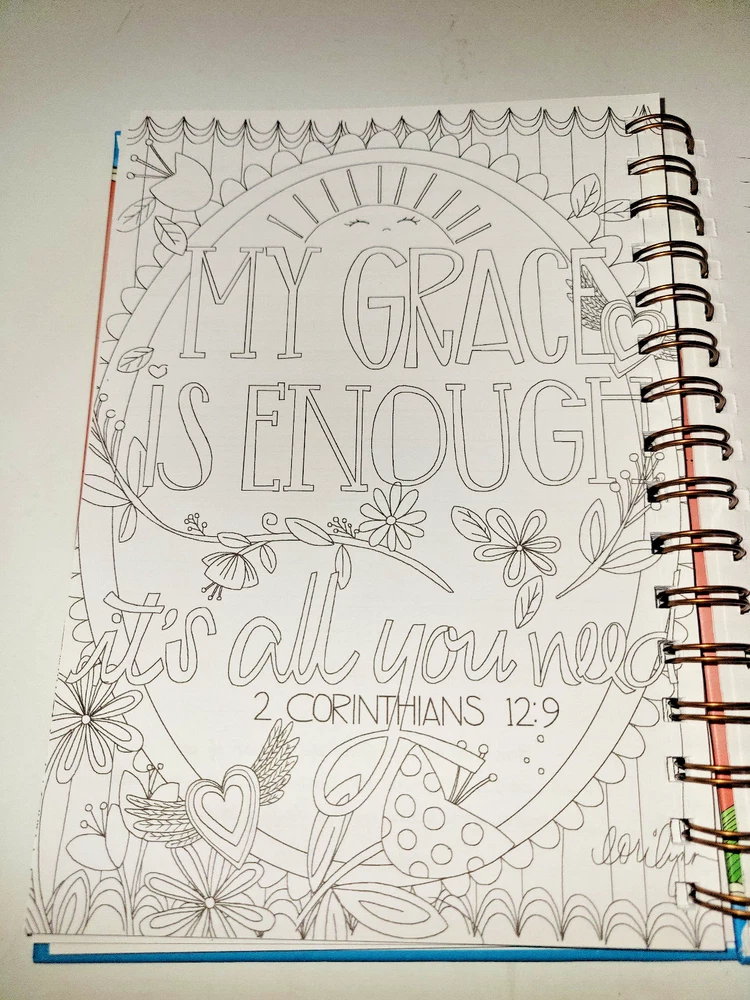 MY GRACE
iS ENOUGH
it's all you need
2 CORINTHIANS 12:9
lorilynn